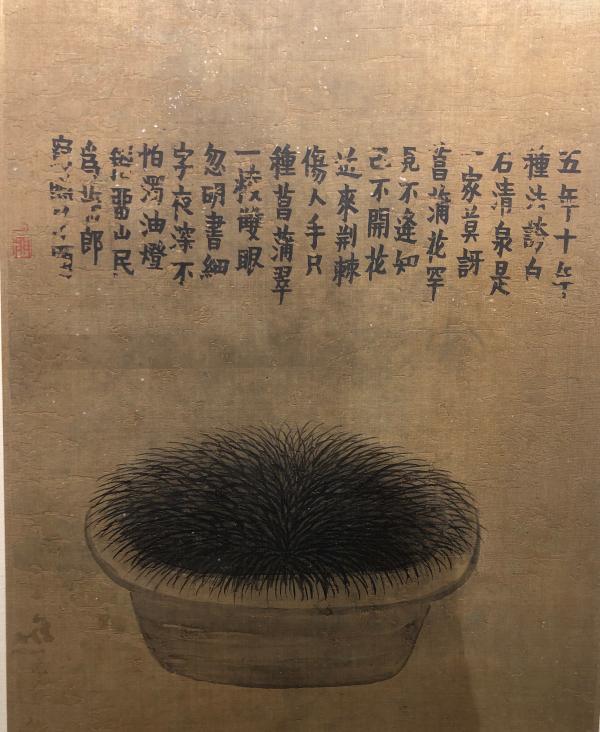 五年十年
種法誇白
石清泉是
一家莫訝
菖蒲花罕
見不逢知
己不開花
近來荊棘
傷人手只
種菖蒲翠
一叢雙眼
忽明書細
字夜深不
怕濁油燈
畱山民
為郎